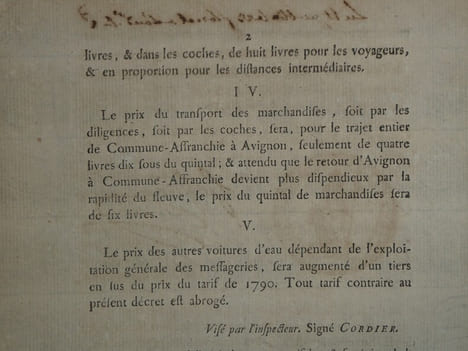 2
livres, & dans les coches, de huit livres pour les voyageurs,
& en proportion pour les diſtances intermédiaires.
I V.
Le prix du tranſport des marchandiſes, ſoit par les
diligences, ſoit par les coches, ſera, pour le trajet entier
de Commune-Affranchie à Avignon, ſeulement de quatre
livres dix ſous du quintal; & attendu que le retour d'Avignon
à Commune-Affranchie devient plus diſpendieux par la
rapidité du fleuve, le prix du quintal de marchandiſes ſera
de ſix livres.
V.
Le prix des autres voitures d'eau dépendant de l'exploi-
tation générale des meſſageries, ſera augmenté d'un tiers
en ſus du prix du tarif de 1790. Tout tarif contraire au
préſent décret eſt abrogé.
Viſé par l'inſpecteur. Signé CORDIER.